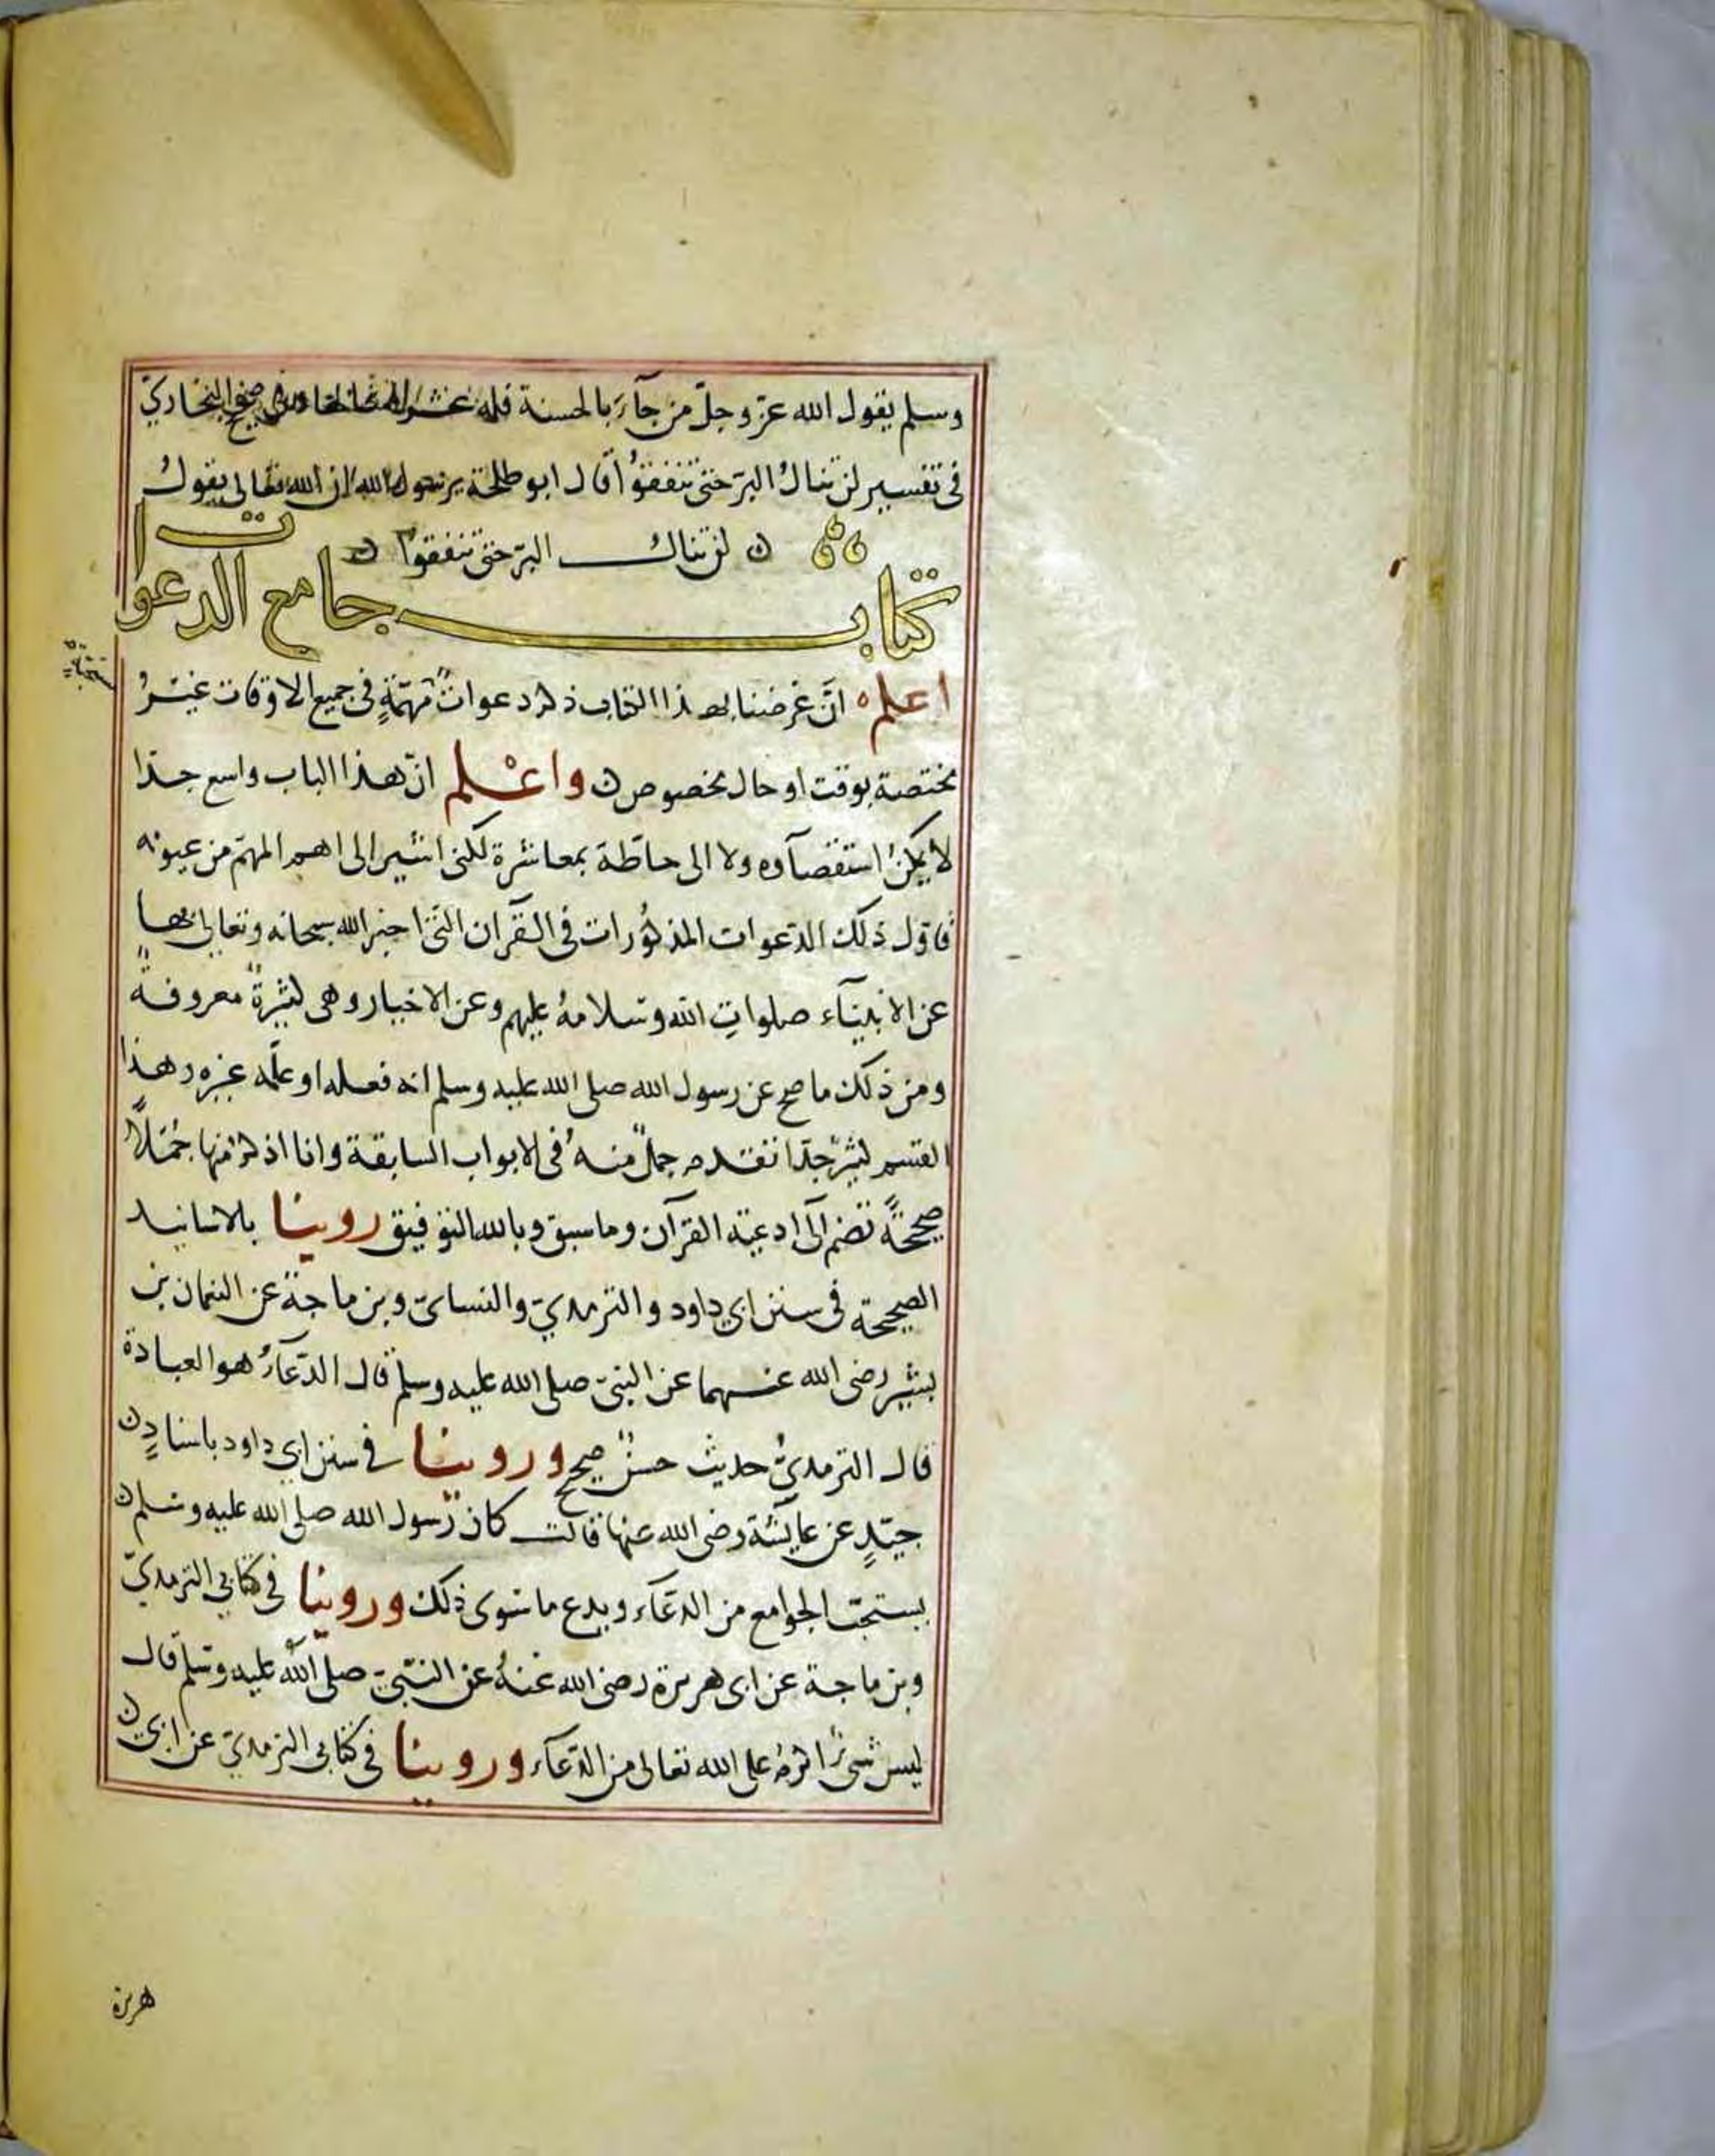 وسلم يقول الله عزّ وجلّ من جآء بالحسنة فله عشر امثالها وفي صحيح البخاريّ
في تفسير لن تنالُ البرّ حتى تنفقوُا قال ابو طلحة يرسول الله ان الله تعالى يقولُ
لن تنالُ البرّ حتى تنفقوا
كتاب جامع الدعوات
مستحبّة
اعلم انَّ غرضنا بهذا الكتاب ذكر دعواتٌ مُهمّةٍ في جميع الاوقات غيرُ
مختصة بوقت او حال مخصوص واعْلم انّ هذا الباب واسع جدّا
لا يمكنُ استقصآوه ولا الى حاطة بمعاشرة لكنى اشير الى اهم المهمّ من عيونه
فاوّل ذلك الدّعوات المذكوُرات في القرآن التى اخبر الله سبحانه وتعالى بها
عن الانبيآء صلواتِ الله وسلامهُ عليهم وعن الاخيار وهى كثيرةٌ معروفةٌ
ومن ذلك ما صح عن رسول الله صلى الله عليه وسلم انه فعله او علّمه غيره وهذا
القسم كثيرٌ جدّا تقدم جملٌ منهُ في الابواب السابقة وانا اذكرُ منها جُمَلاً
صحيحةً تضم الَى ادعية القرآن وما سبق وبالله التوفيق روينا بالاسانيد
الصحيحة في سنن ابي داود والترمذيّ والنساىّ وبن ماجة عن النعمان بن
بشير رضى الله عنهما عن النبىّ صلى الله عليه وسلم قال الدّعآءُ هو العبادة
قال الترمذىُّ حديث حسنٌ صحيح وروينا في سنن ابي داود باسنادٍ
جيّدٍ عن عايشة رضى الله عنها قالت كان رسول الله صلى الله عليه وسلم
يستحبّ الجوامع من الدعّآء ويدع ما سوى ذلك وروينا في كتابي الترمذيّ
وبن ماجة عن ابى هريرة رضى الله عنهُ عن النبّىّ صلى اللّه عليه وسلم قال
ليس شىءٌ اكرمُ على الله تعالى من الدّعآء وروينا في كتابى الترمذىّ عن ابي
هريرة